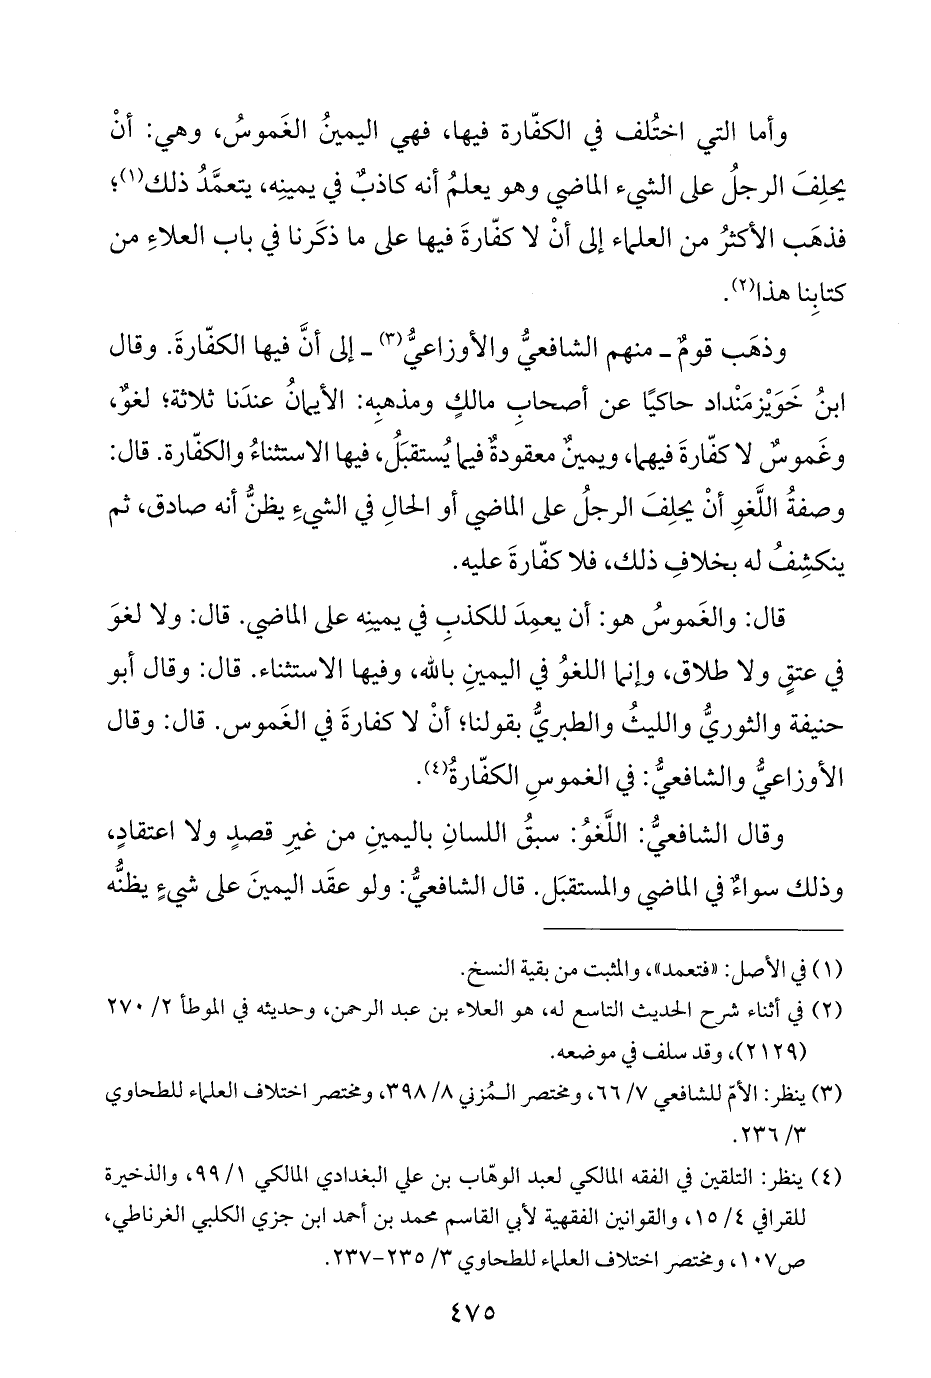 وأما التي اختُلف في الكفّارة فيها، فهي اليمينُ الغَموسُ، وهي: أنْ
يحلِفَ الرجلُ على الشيء الماضي وهو يعلمُ أنه كاذبٌ في يمينِه، يتعمَّدُ ذلك(١)؛
فذهَب الأكثرُ من العلماء إلى أنْ لا كفّارةَ فيها على ما ذكَرنا في باب العلاءِ من
كتابِنا هذا(٢).
وذهَب قومٌ ـ منهم الشافعيُّ والأوزاعيُّ(٣) ـ إلى أنَّ فيها الكفّارةَ. وقال
ابنُ خَوَيْزمَنْداد حاكيًا عن أصحابِ مالكٍ ومذهبِه: الأيمانُ عندَنا ثلاثة؛ لغوٌ،
وغَموسٌ لا كفّارةَ فيهما، ويمينٌ معقودةٌ فيما يُستقبَلُ، فيها الاستثناءُ والكفّارة. قال:
وصفةُ اللَّغوِ أنْ يحلِفَ الرجلُ على الماضي أو الحالِ في الشيءِ يظنُّ أنه صادق، ثم
ينكشِفُ له بخلافِ ذلك، فلا كفّارةَ عليه.
قال: والغَموسُ هو: أن يعمِدَ للكذبِ في يمينِه على الماضي. قال: ولا لغوَ
في عتقٍ ولا طلاق، وإنما اللغوُ في اليمينِ بالله، وفيها الاستثناء. قال: وقال أبو
حنيفة والثوريُّ والليثُ والطبريُّ بقولنا؛ أنْ لا كفارةَ في الغَموس. قال: وقال
الأوزاعيُّ والشافعيُّ: في الغموسِ الكفّارةُ(٤).
وقال الشافعيُّ: اللَّغوُ: سبقُ اللسانِ باليمينِ من غيرِ قصدٍ ولا اعتقادٍ،
وذلك سواءٌ في الماضي والمستقبَل. قال الشافعيُّ: ولو عقَد اليمينَ على شيءٍ يظنُّه
(١) في الأصل: «فتعمد»، والمثبت من بقية النسخ.
(٢) في أثناء شرح الحديث التاسع له، هو العلاء بن عبد الرحمن، وحديثه في الموطأ ٢/ ٢٧٠
(٢١٢٩)، وقد سلف في موضعه.
(٣) ينظر: الأمّ للشافعي ٧/ ٦٦، ومختصر الـمُزني ٨/ ٣٩٨، ومختصر اختلاف العلماء للطحاوي
٣/ ٢٣٦.
(٤) ينظر: التلقين في الفقه المالكي لعبد الوهّاب بن علي البغدادي المالكي ١/ ٩٩، والذخيرة
للقرافي ٤/ ١٥، والقوانين الفقهية لأبي القاسم محمد بن أحمد ابن جزي الكلبي الغرناطي،
ص١٠٧، ومختصر اختلاف العلماء للطحاوي ٣/ ٢٣٥-٢٣٧.
٤٧٥